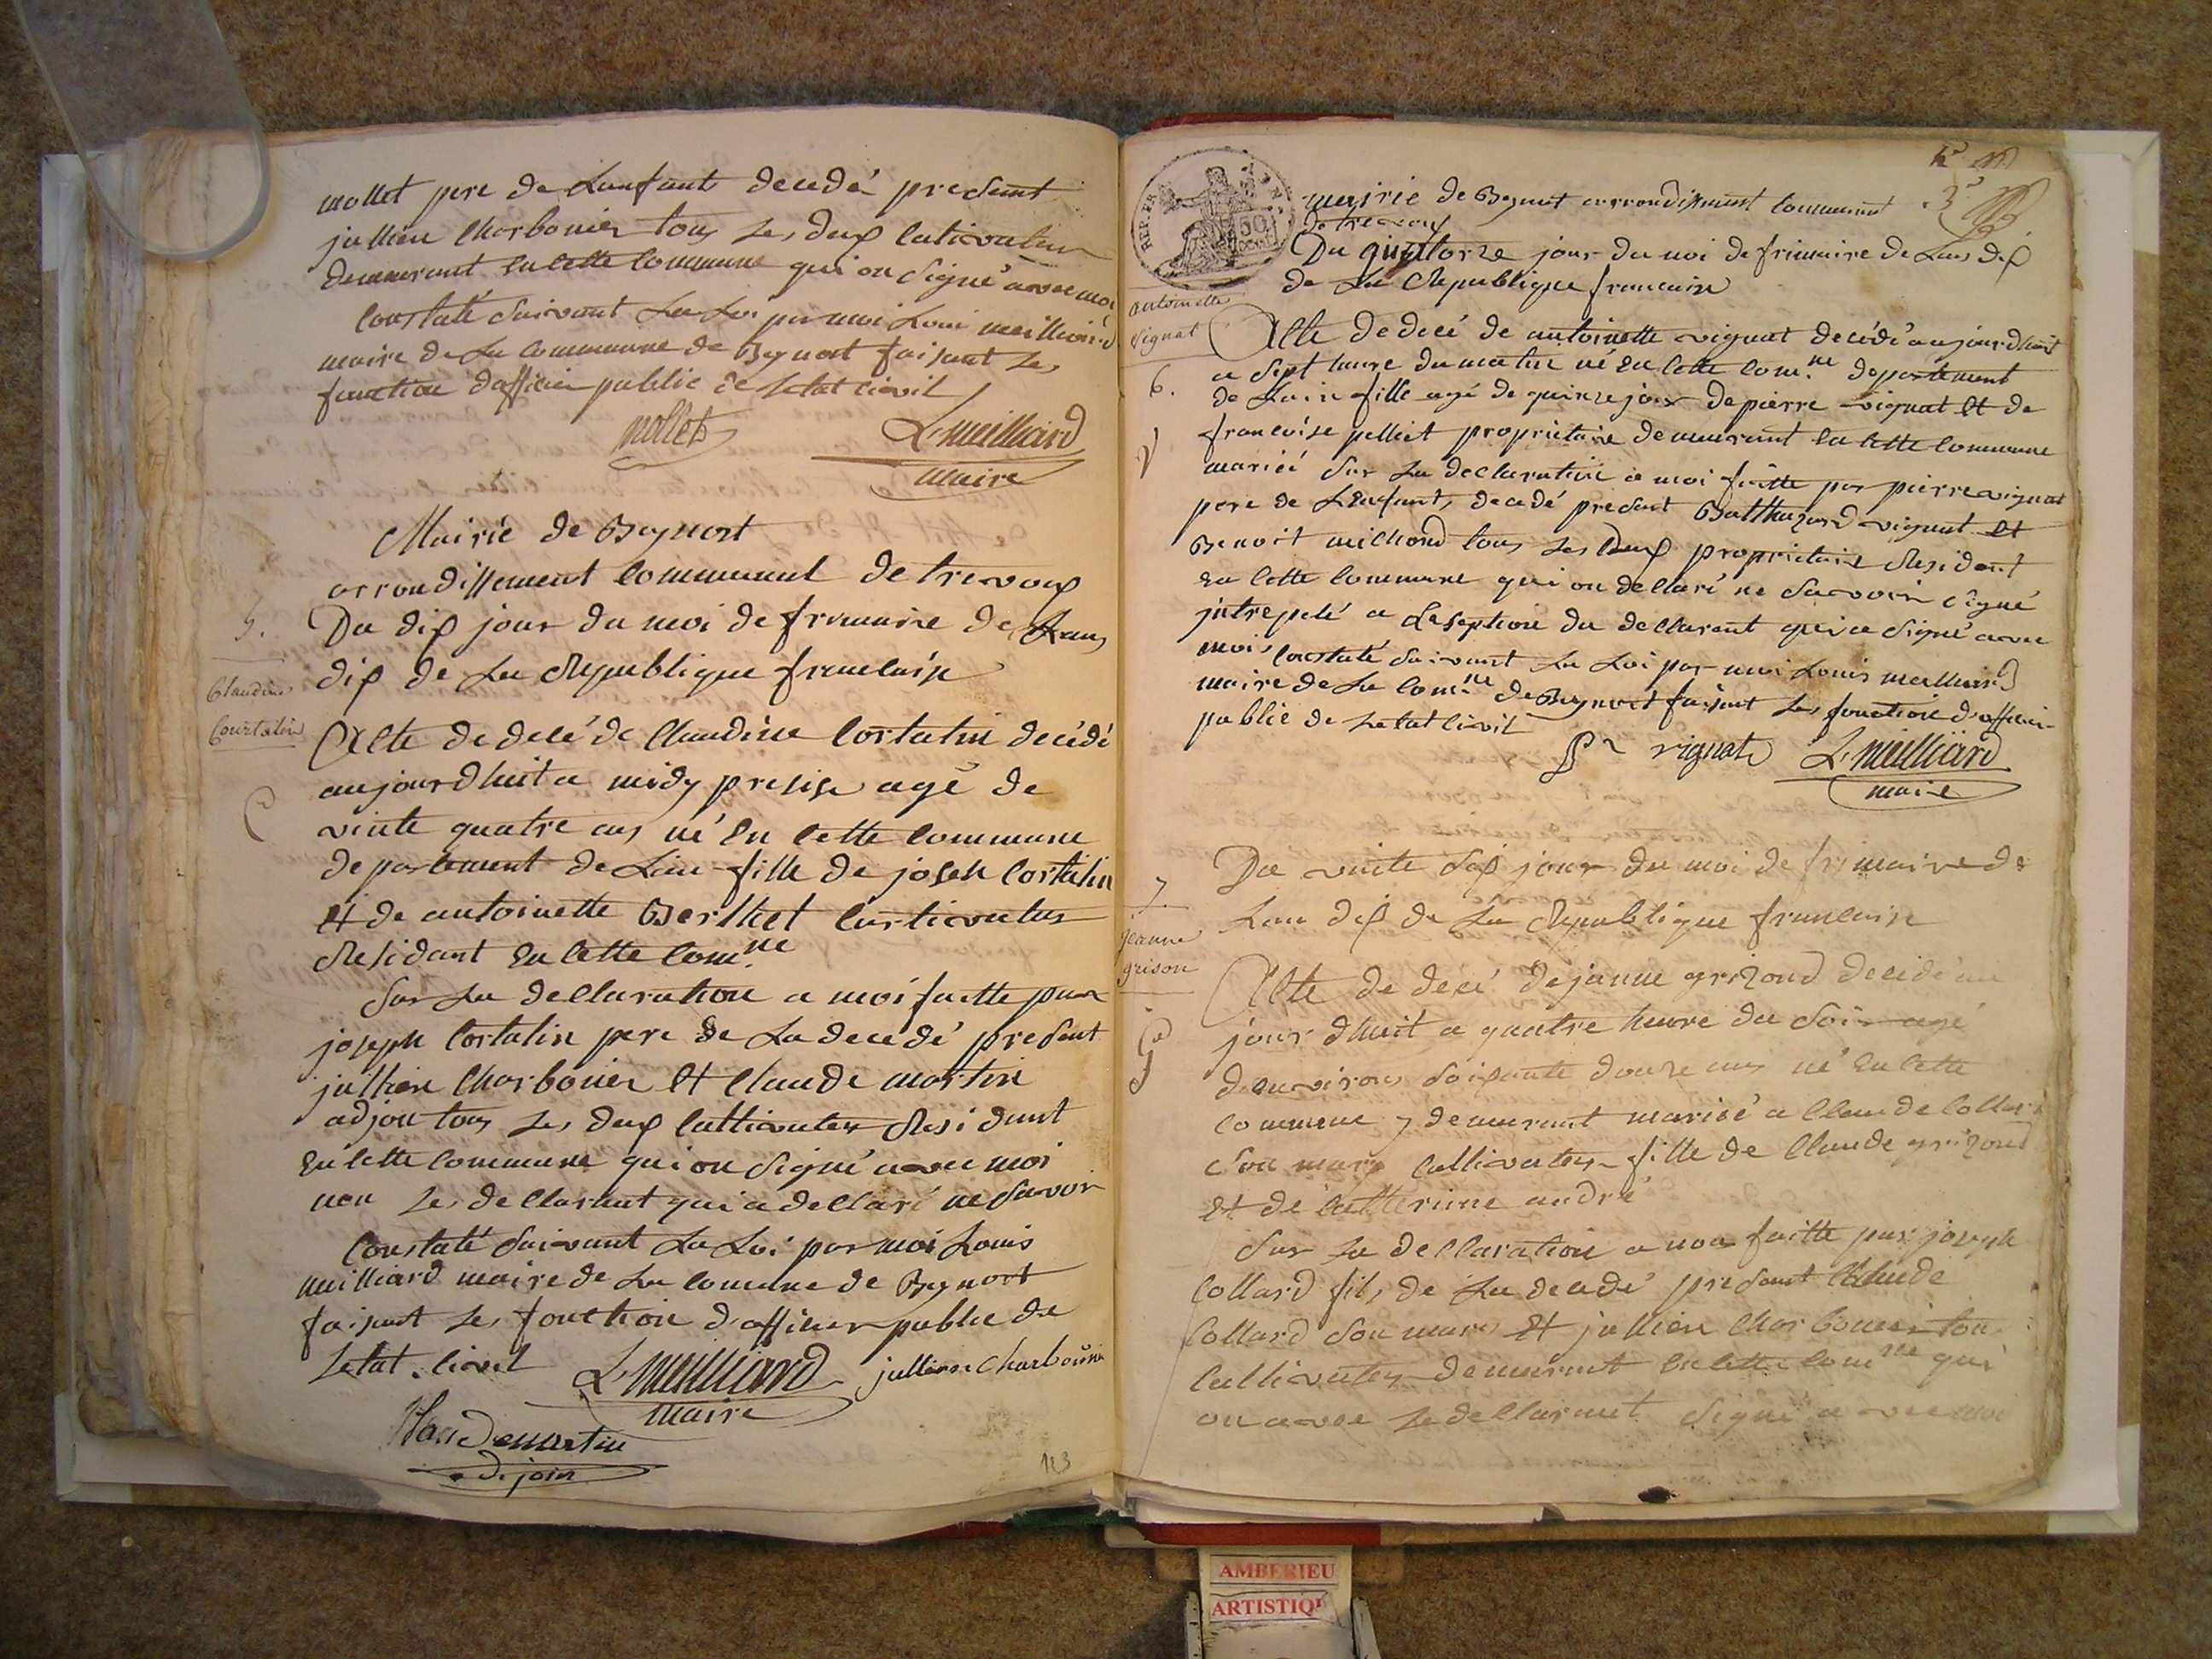 mollet pere de Lanfant decedé presant
jullien Charbonier tous les deux cultivateur
demeurant en cette Commune qui on Signé avec moi
Constaté Suivant La Loi par moi Loui meilliard
maire de La Commune de Beynost faisant les
fonction dofficier public de letat civil
mollet L. meilliard
maire
Mairie de Beynost
arrondissement Communal de trevoux
5. Du dix jour du moi de frimaire de Lans
dix de La Republique francaise
Claudine
Courtalin
Acte de decé de Claudine Cortalin decédé
aujourdhuit a midy presise agé de
vinte quatre ans né en cette Commune
departement de Lain fille de joseh Cortalin
et de antoinette Berthet Curtivateur
Residant en cette Com.ne
Sur La declaration a moi faitte par
joseph Cortalin pere de La decedé presant
jullien Charbonier et Claude martin
adjoin tous les deux Cultivateur Residant
en cette Commune qui on Signé avec moi
non le declarant qui a declaré ne Savoir
Constaté Suivant La Loi par moi Louis
meilliard maire de La Comune de Beynost
faisant les fonction d'afficier public de
letat civil L. meilliard jullien Charbonier
maire
Claude martin
adjoin
113
2e
3e
REP. FRA.
50
mairie de Beynost arrondissement Communal
de trevoux
Du quatorze jour du moi de frimaire de Lans dix
de La Republique francaise
antoinette
vignat
Acte de decé de antoinette vignat decédé aujourdhuit
6. a Sept heure du matin né en cette Com.ne departement
de Lain fille agé de quinze jour de pierre vignat et de
francoise pelliet proprietaire demeurant en cette Commune
mariéé Sur La declaration a moi faitte par pierre vignat
pere de Lenfant decedé presant Balthazard vignat et
Benoit michond tous les deux proprietaire Residant
en cette Commune qui on declaré ne Savoir signé
jntrepelé a Leseption du declarant qui a Signé avec
moi Constaté Suivant La Loi par moi Louis meilliard
maire de La Com.ne de Beynost faisant les fonction d'afficier
public de letat civil
Pre vignat L. meilliard
maire
7. Du vinte Six jour du moi de frimaire de
Lan dix de La Republique francaise
jeanne
grison
Acte de decé de janne grizond decedé au
jourdhuit a quatre heure du Soir agé
denviron Soixante douze ans né en cette
Commune y demeurant mariéé a Claude Collard
Son mary Cultivateur fille de Claude grizond
et de Catterine andré
Sur La declaration a moi faitte par joseph
Collard fils de La decedé presant Claude
Collard Son mari et jullien Charbonier tou
Cultivateur demeurant en cette Com.ne qui
on avec le declarant Signé avec moi
AMBERIEU
ARTISTIQ